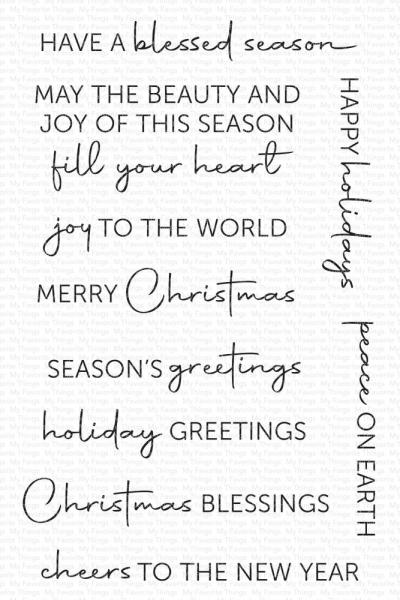 HAVE A blessed season
MAY THE BEAUTY AND
JOY OF THIS SEASON
fill your heart
joy TO THE WORLD
MERRY Christmas
SEASON'S greetings
holiday GREETINGS
Christmas BLESSINGS
cheers TO THE NEW YEAR
HAPPY holidays
peace ON EARTH